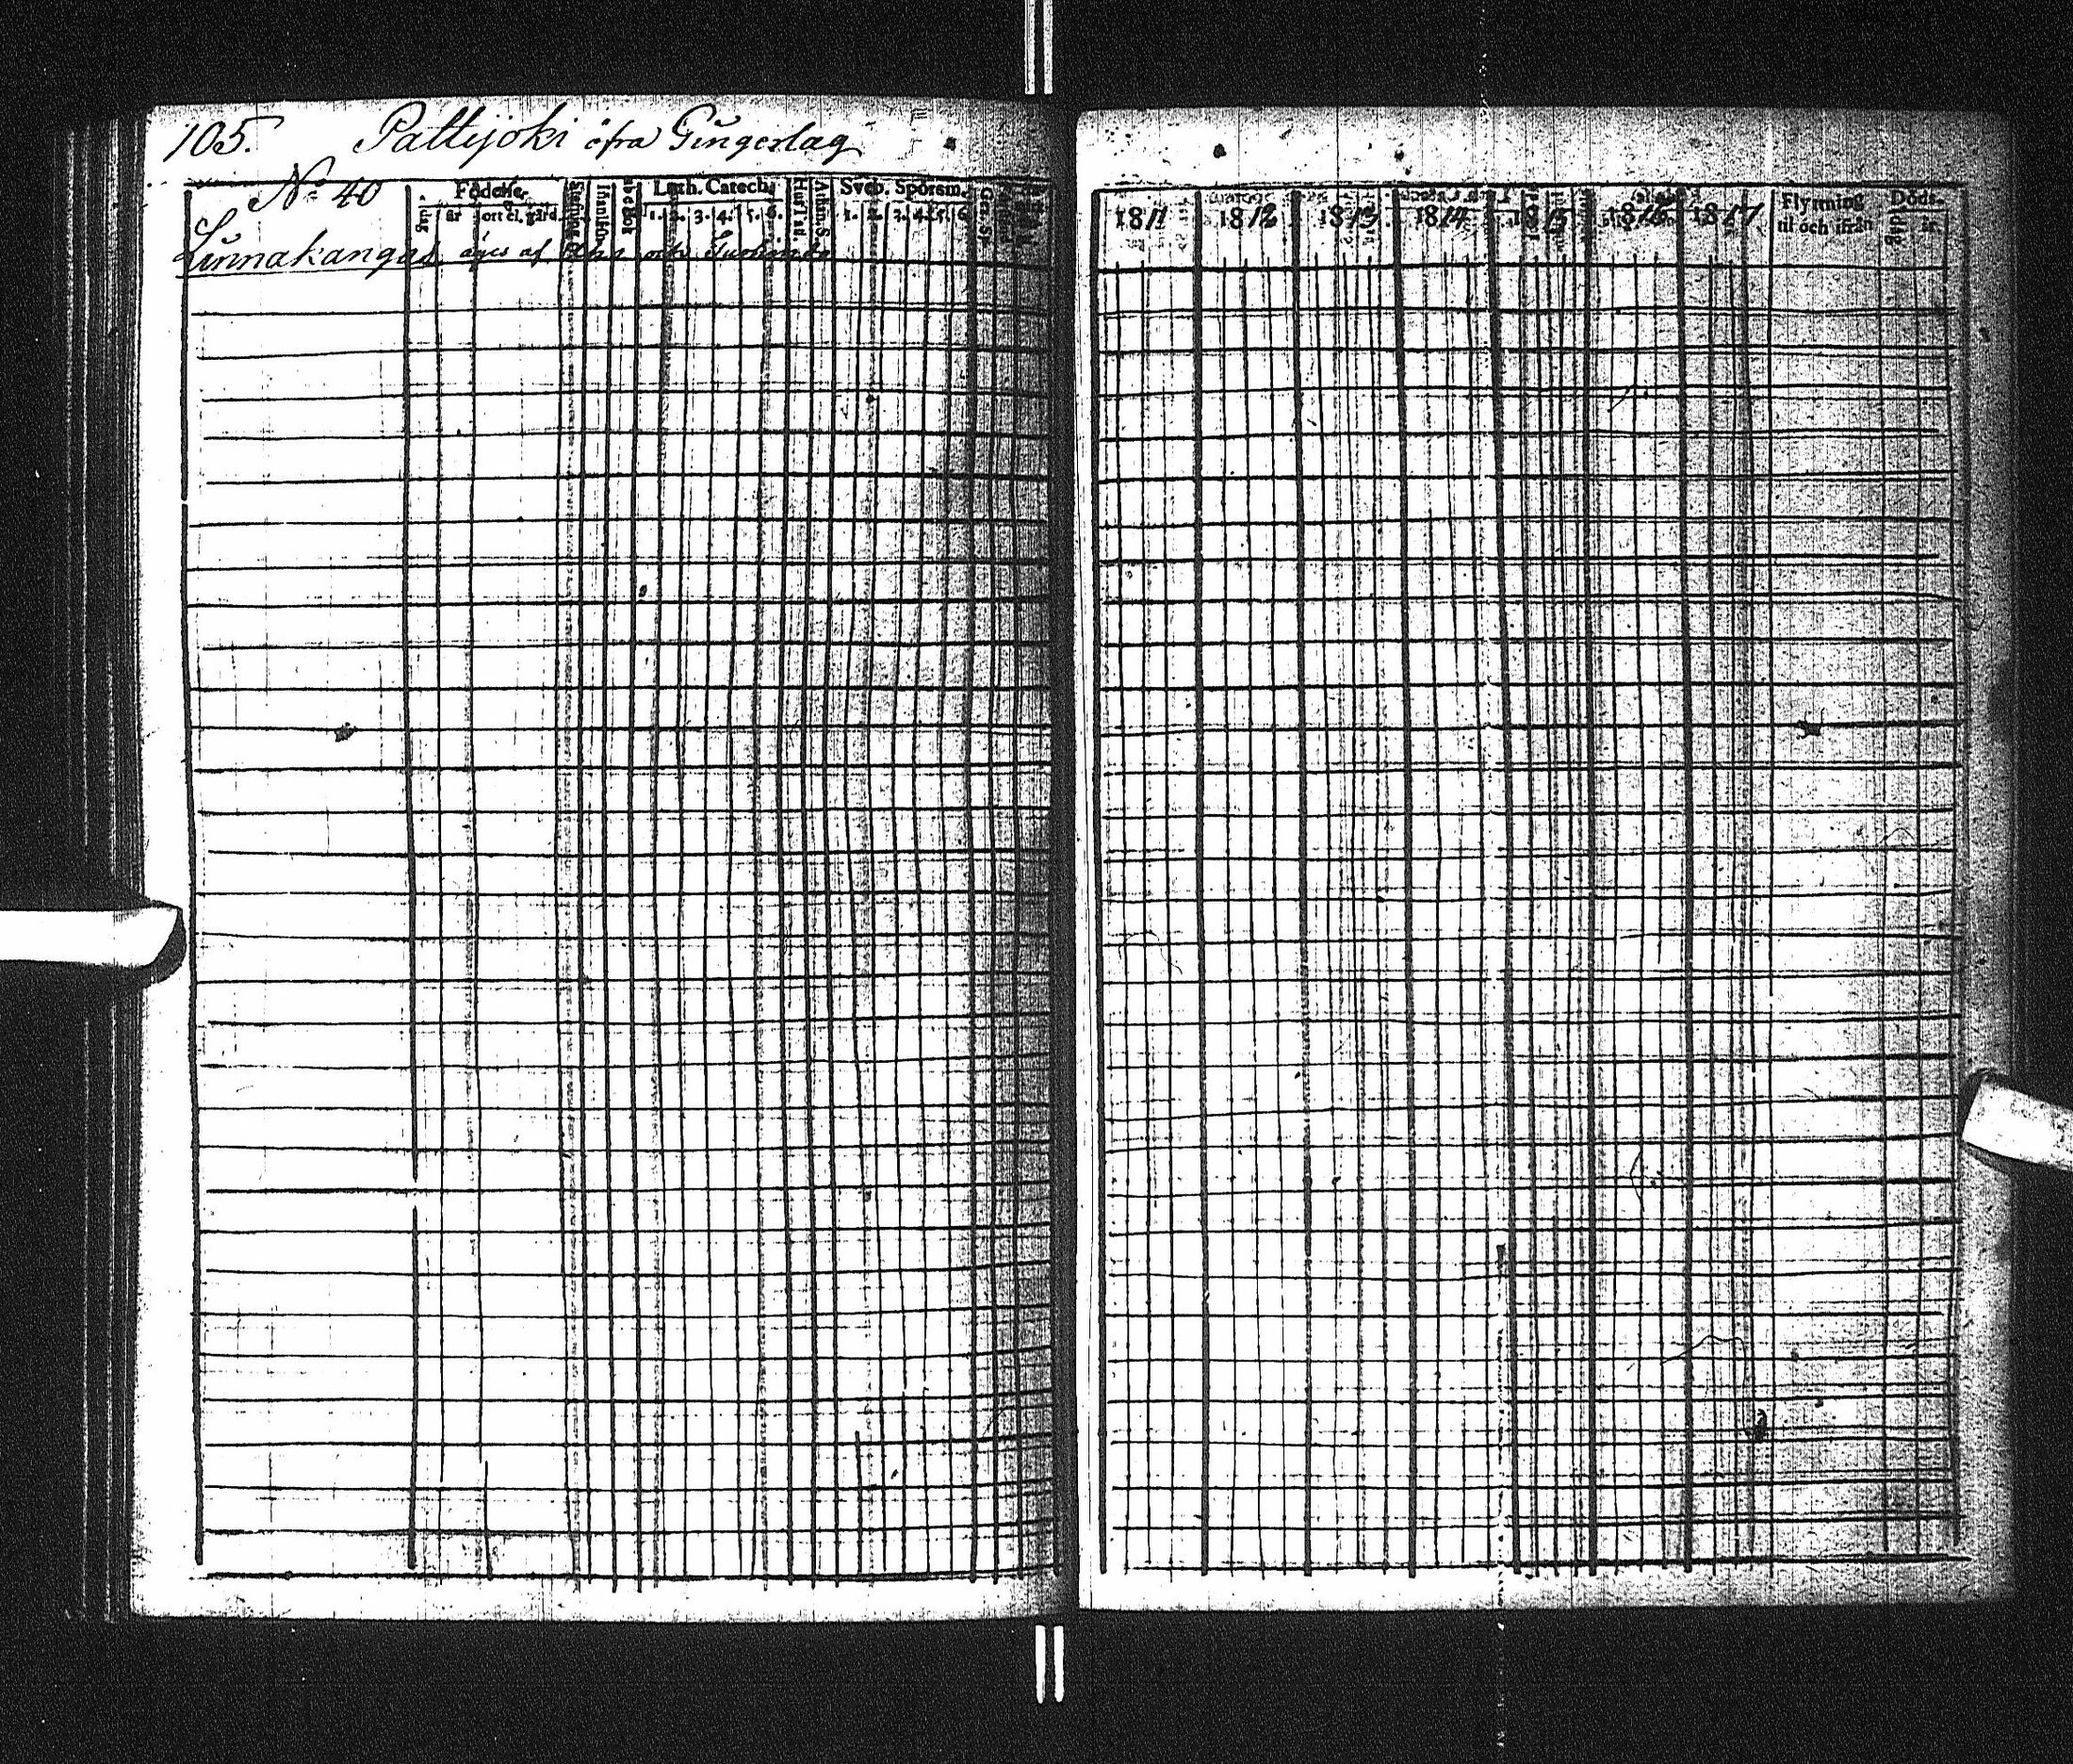 105. Pattijoki öfra Gungerlag
No 40
Födelse- Luth. Catech. Sveb. Spörsm.
dag år ort el. gård. 1. 2. 3. 4. 5. 6. 1. 2. 3. 4. 5. 6.
Linnakangas äges af och
1811 1812 1813 1814 1815 1816 1817 Flyttning til och ifrån Döds- dag år.